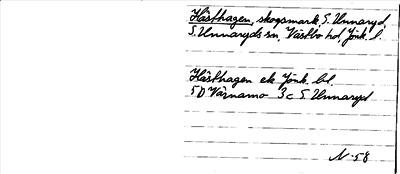 Hästhagen, skogsmark, S. Unnaryd,
S. Unnaryds sn, Västbo hd, Jönk. l.
Hästhagen ek Jönk. bl.
5D Värnamo 3c S. Unnaryd
N-58